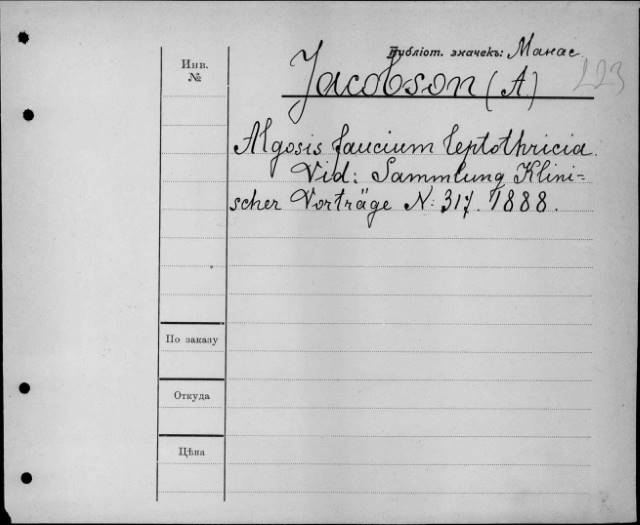 Инв. №
Библіот. значекъ: Манас
223
Jacobson (A)
Algosis faucium leptothricia.
Vid: Sammlung Klini=
scher Vorträge N: 317. 1888.
По заказу
Откуда
Цѣна